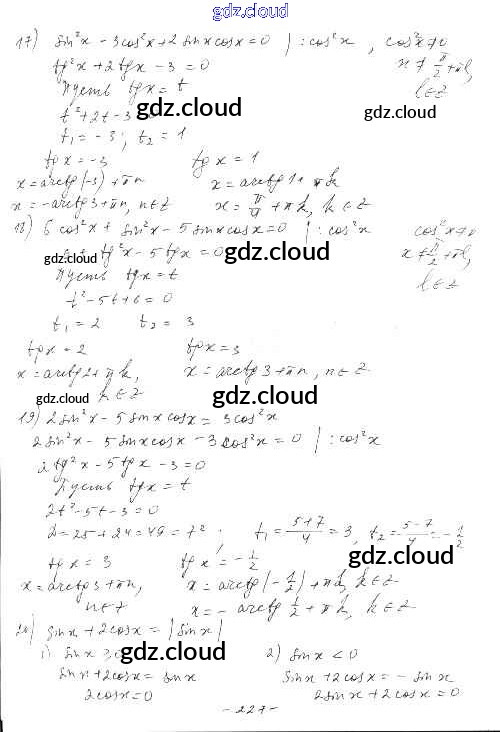 gdz.cloud
17) sin²x - 3cos²x + 2 sinxcosx = 0 | : cos²x , cos²x ≠ 0
tg²x + 2tgx - 3 = 0 x ≠ π/2 + πl,
Пусть tgx = t l ∈ Z
t² + 2t - 3 gdz.cloud gdz.cloud
t₁ = -3; t₂ = 1
tgx = -3 tgx = 1
x = arctg(-3) + πn x = arctg1 + πk
x = -arctg3 + πn, n ∈ Z x = π/4 + πk, k ∈ Z
18) 6cos²x + sin²x - 5sinxcosx = 0 | : cos²x cos²x ≠ 0
gdz.cloud tg²x - 5tgx = 0 gdz.cloud x ≠ π/2 + πl,
Пусть tgx = t l ∈ Z
t² - 5t + 6 = 0
t₁ = 2 t₂ = 3
tgx = 2 tgx = 3
x = arctg2 + πk, x = arctg3 + πn, n ∈ Z
k ∈ Z gdz.cloud
19) 2sin²x - 5sinxcosx = 3cos²x
2sin²x - 5sinxcosx - 3cos²x = 0 | : cos²x
gdz.cloud
2tg²x - 5tgx - 3 = 0
Пусть tgx = t
2t² - 5t - 3 = 0
D = 25 + 24 = 49 = 7² . t₁ = (5+7)/4 = 3, t₂ = (5-7)/4 = -1/2
tgx = 3 tgx = -1/2 gdz.cloud
x = arctg3 + πn, x = arctg(-1/2) + πk, k ∈ Z
n ∈ Z x = -arctg 1/2 + πk, k ∈ Z
20) sinx + 2cosx = |sinx|
1) sinx gdz.cloud 2) sinx < 0
sinx + 2cosx = sinx sinx + 2cosx = -sinx
2cosx = 0 2sinx + 2cosx = 0
- 227 -
gdz.cloud